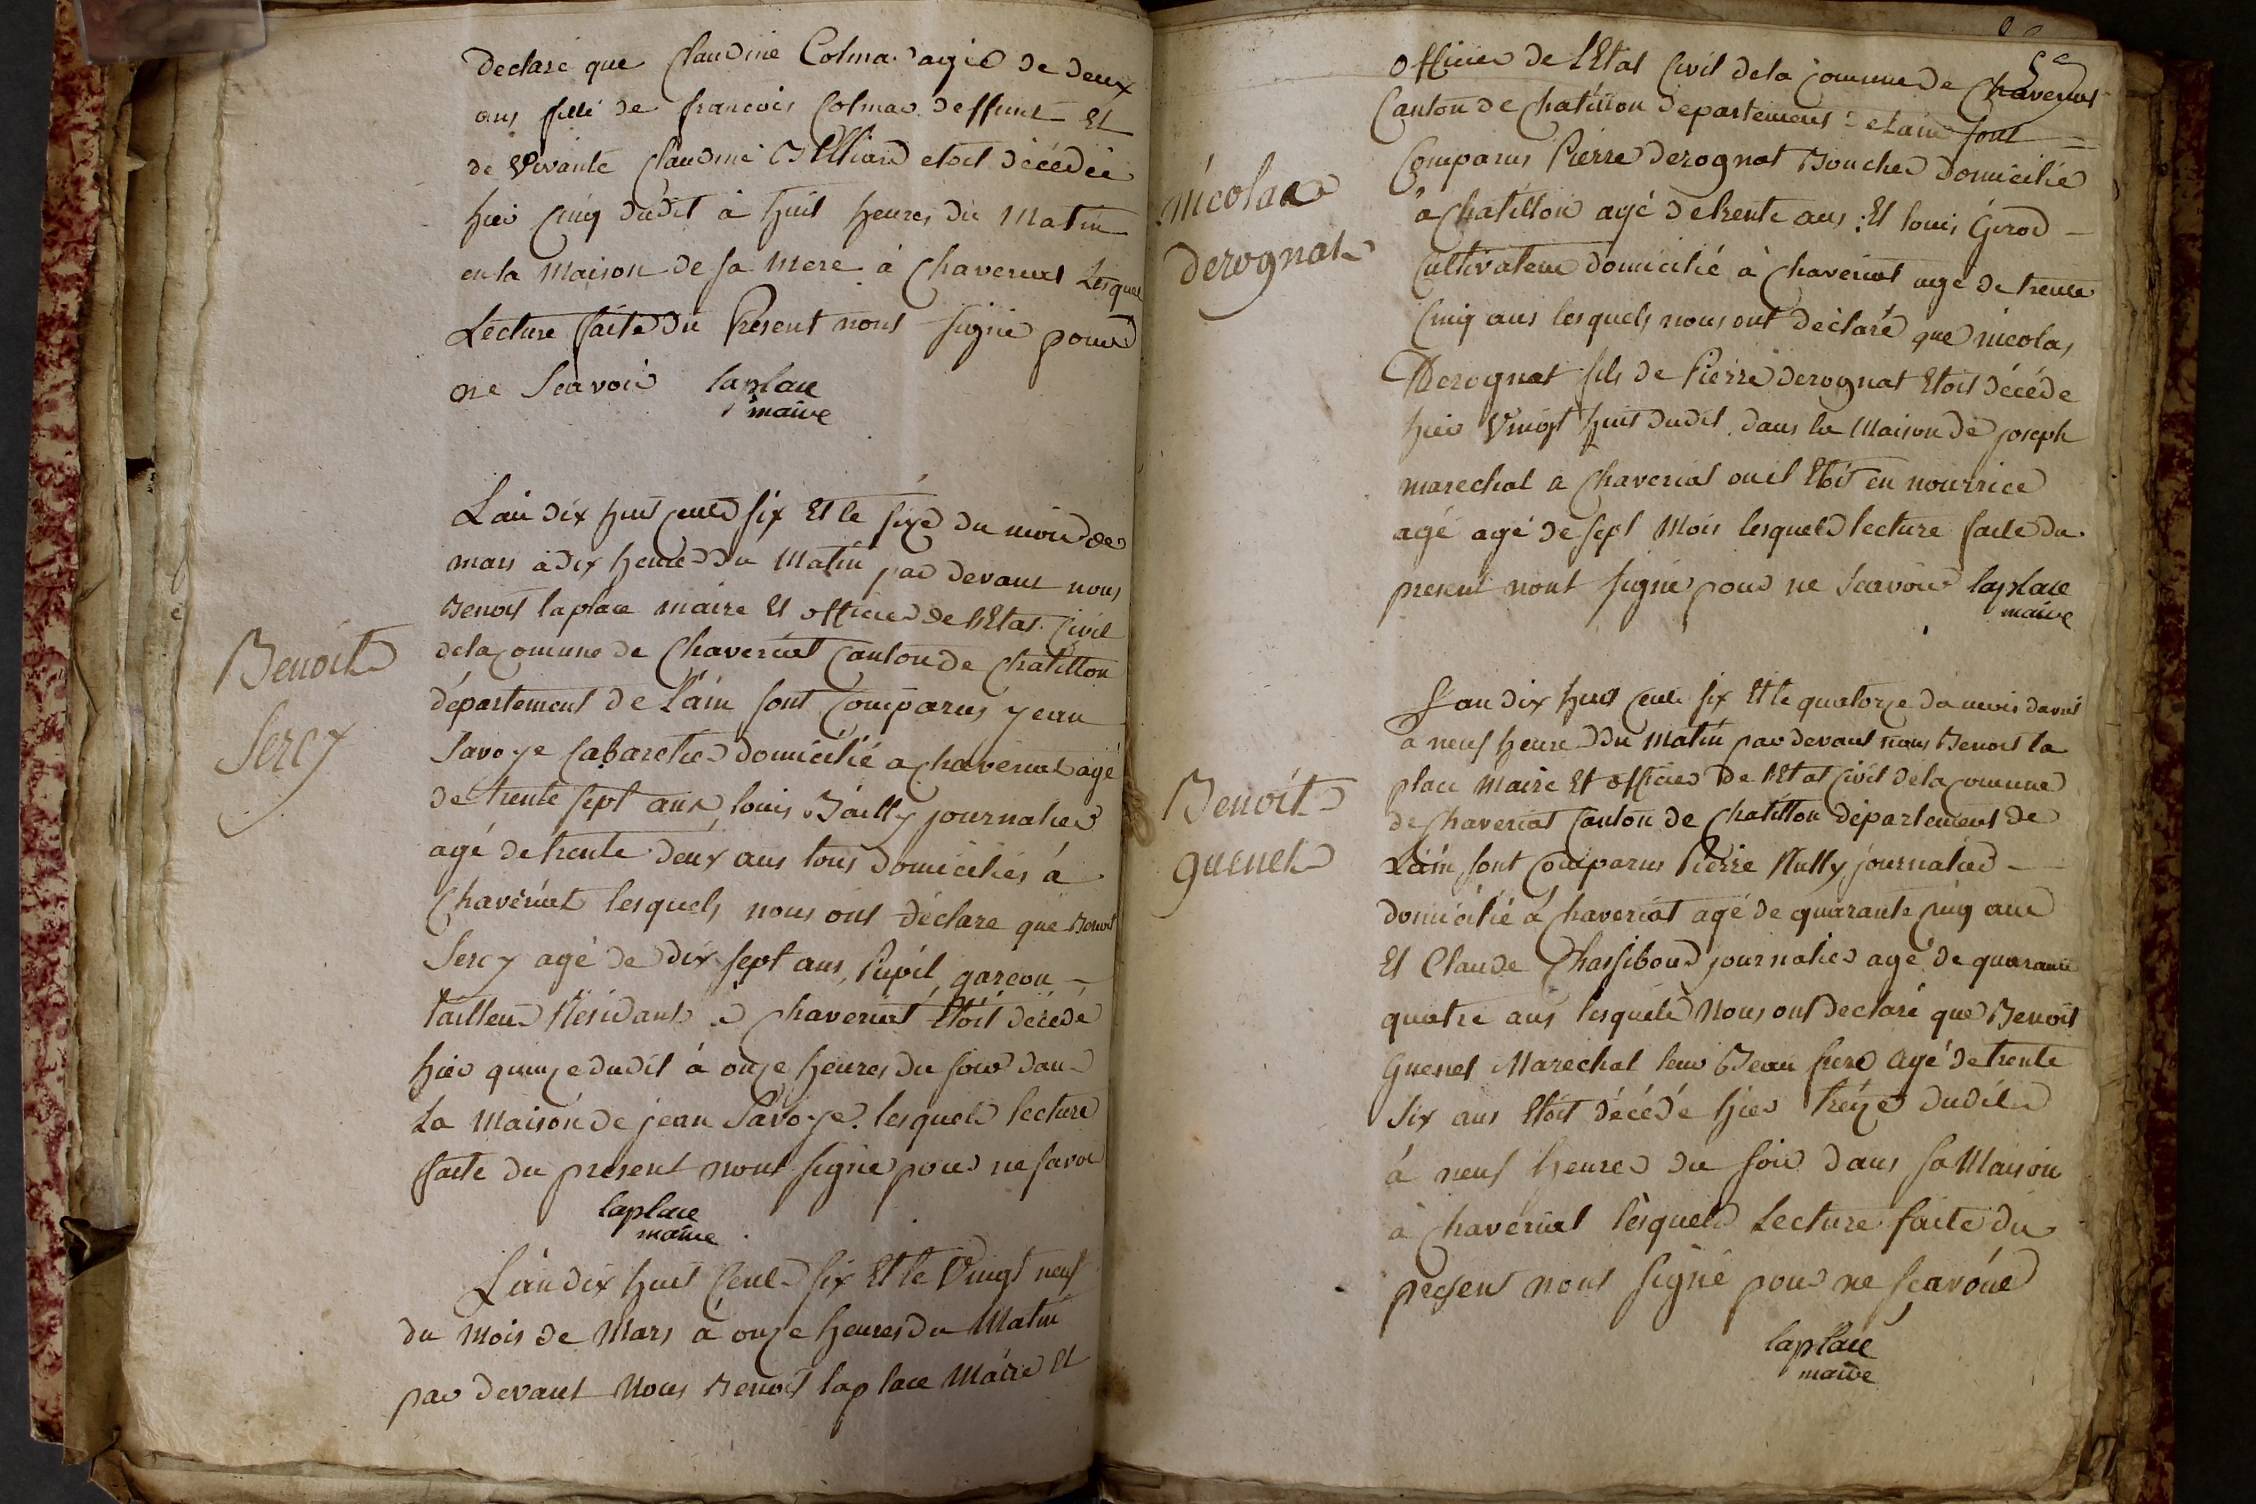 Declare que Claudine Colma agée de deux
ans fille de francois Colmas deffunt Et
de Vivante Claudine etoit décédée
hier Cinq dudit à huit heures du Matin
en la Maison de sa Mere à Chaveriat Lesquel
Lecture faite du Present nont signé pour
ne Scavoir laplace
maire
Benoit
Sercy
Lan dix huit cent six Et le size du mois de
mars à dix heure du Matin par devant nous
Benoit laplace maire Et officier de l'Etat Civil
de la comune de Chaveriat Canton de Chatillon
département de l'ain sont Comparus jean
Savoye Cabaretier domicilié a chaveriat agé
de trente sept ans louis Bailly journalier
agé de trente deux ans tous domiciliés à
Chaveriat lesquels nous ont déclare que Benoit
Sercy agé de dix sept ans, Pupil garcon
tailleur Résidant à Chaveriat Etoit décédé
hier quinze dudit à onze heures du soir dans
La Maison de jean Savoye. lesquels lecture
faite du présent nont signé pour ne savoir
laplace
maire
Lan dix huit Cent six Et le Vingt neuf
du Mois de Mars à onze heures du Matin
par devant Nous Benoit laplace Maire Et
nicolas
derognat
officier de l'Etat Civil de la Comune de Chaveriat
Canton de Chatillon departement de Lain sont
Comparus Pierre derognat Boucher domicilié
à Chatillon agé de trente ans Et louis Girod
Cultivateur domicilié à Chaveriat agé de trente
Cinq ans lesquels nous ont declaré que nicolas
Derognat fils de Pierre derognat Etoit décéde
hier Vingt huit dudit dans la Maison de joseph
marechal a Chaveriat ou il Etoit en nourrice
agé agé de sept Mois lesquels lecture faite du
present nont signé pour ne Scavoir laplace
maire
Benoit
guenet
Lan dix huit Cent six Et le quatorze du mois davril
a neuf heure du Matin par devant nous Benoit la
place Maire Et officier de l'Etat Civil de la Comune
de Chaveriat Canton de Chatillon département de
Lain sont Comparus Pierre Nully journalier
domicilié à Chaveriat agé de quarante cinq ans
Et Claude Chassiboud journalier agé de quarante
quatre ans lesquels Nous ont declaré que Benoit
Guenet Marechal leur Beau frere Agé de trente
Six ans Etoit décédé hier treize dudit
à neuf heures du soir dans sa Maison
à Chaveriat lesquels Lecture faite du
present nont signé pour ne Scavoir
laplace
maire